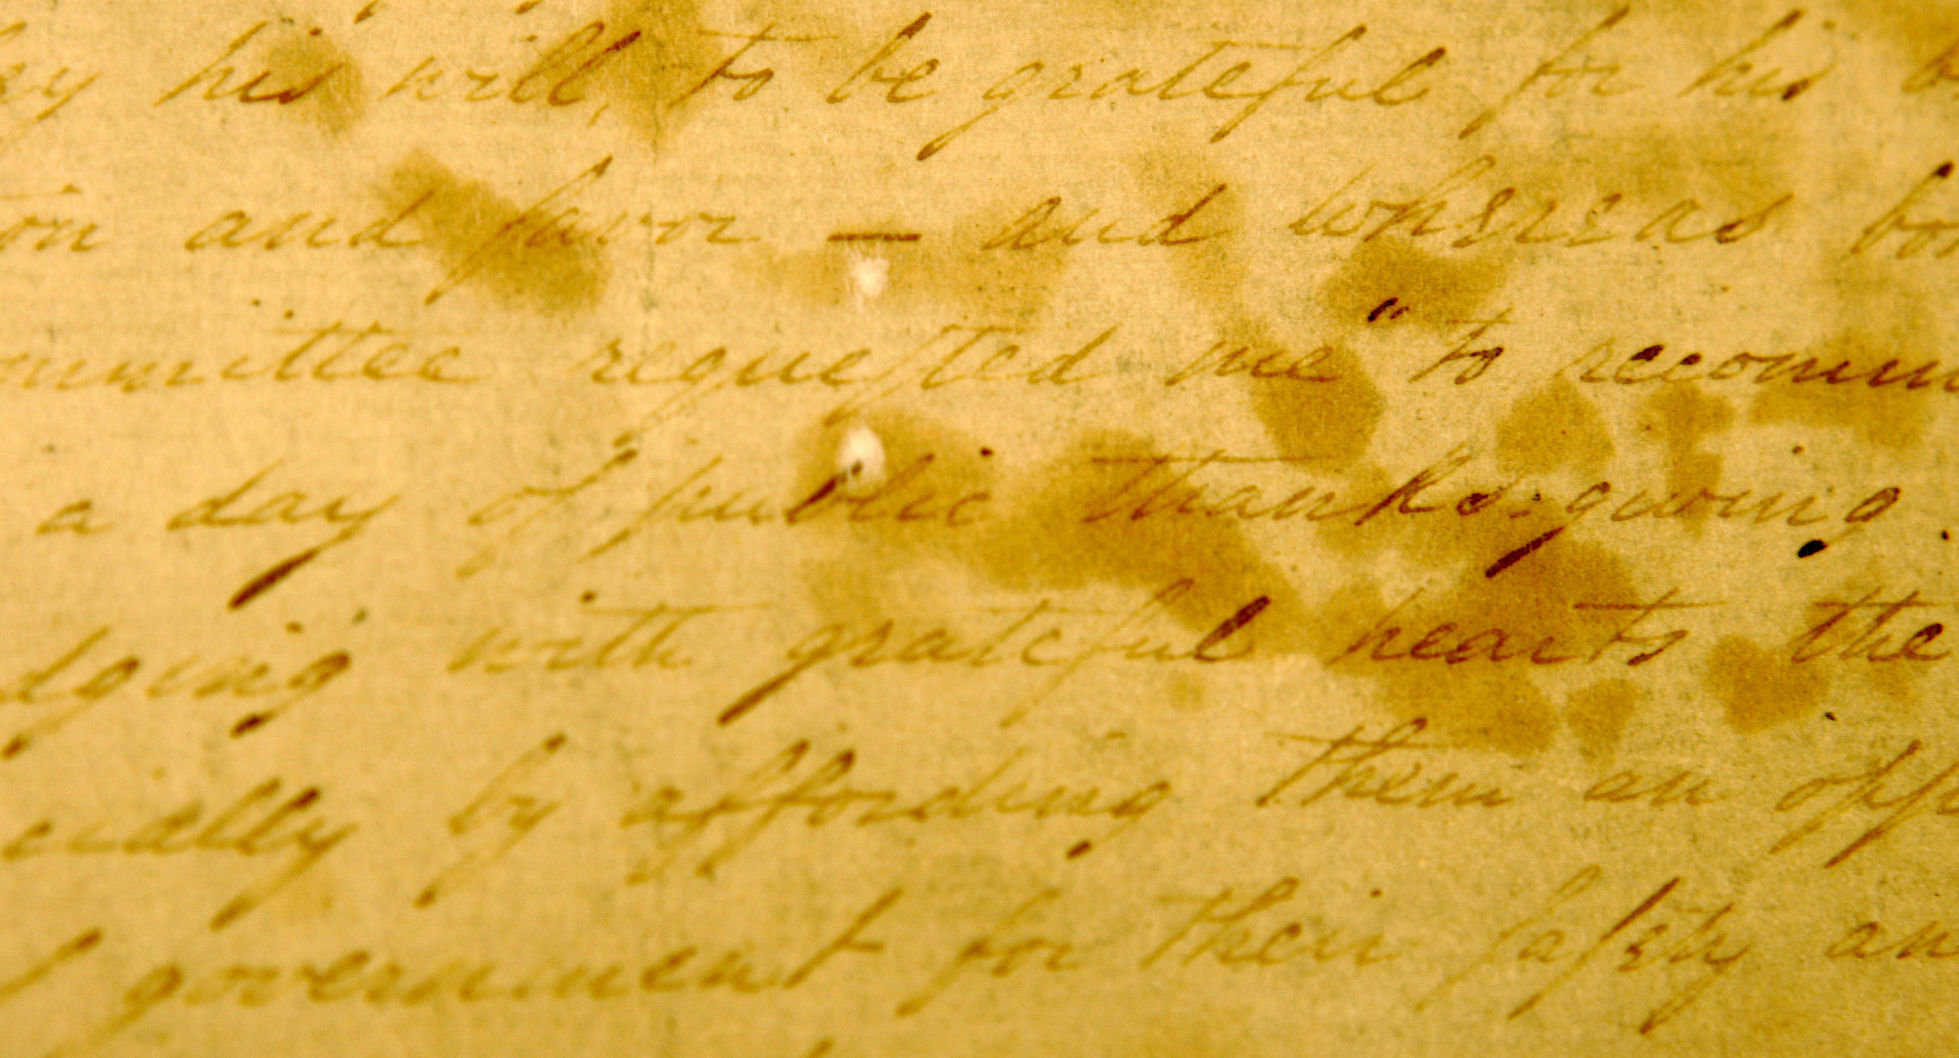 ey his will, to be grateful for his b
ion and favor — and whereas bo
ommittee requeſted me "to recomm
a day of public thanks-giving
dging with grateful hearts the
cially by affording them an opp
f government for their ſafety an